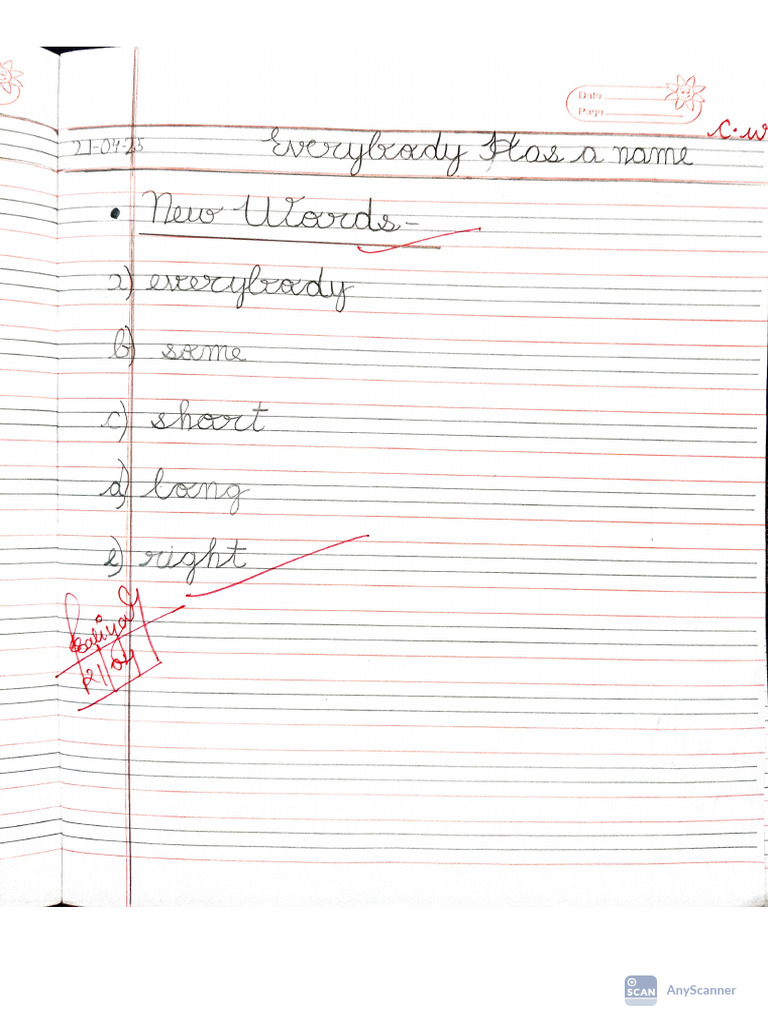 Date
Page
C.W
21-04-25 Everybody Has a name
• New Words-
a) everybody
b) some
c) short
d) long
e) right
21/04
SCAN AnyScanner